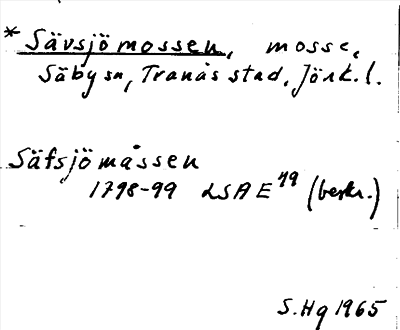 * Sävsjömossen, mosse,
Säby sn, Tranås stad, Jönk. l.
Säfsjömåssen
1798-99 LSA E 79 (beskr.)
S. Hg 1965